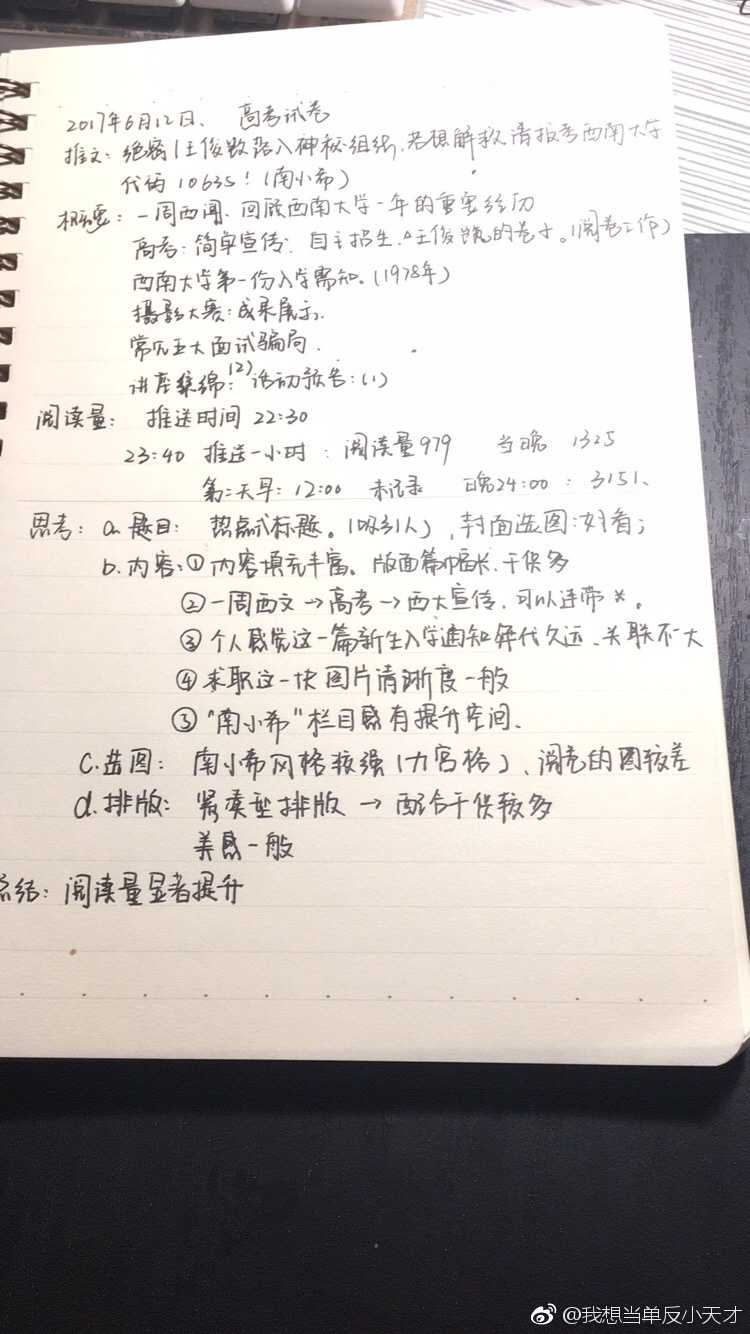 2017年6月12日、 高考试卷
推文：绝密！王俊凯落入神秘组织，若想解救请报考西南大学
代码10635！（南小希）
概要：一周西闻、回顾西南大学一年的重要经历
高考：简单宣传、自主招生、王俊凯的卷子。（阅卷工作）
西南大学第一份入学需知。（1978年）
摄影大赛：成果展示、
常见五大面试骗局．
讲座集锦：(2) 活动预告：(1)
阅读量： 推送时间 22:30
23:40 推送一小时：阅读量979 当晚 1325
第二天早：12:00 未记录 晚24:00：3151、
思考：a. 题目： 热点式标题。（吸引人），封面选图：好看；
b. 内容：① 内容填充丰富。版面篇幅长、干货多
② 一周西文→高考→西大宣传，可以连带*。
③ 个人感觉这一篇新生入学通知年代久远、关联不大
④ 求职这一块图片清晰度一般
⑤ “南小希”栏目感有提升空间．
C. 选图： 南小希风格较强（九宫格）、阅卷的图较差
d. 排版： 紧凑型排版 → 配合干货较多
美感一般
总结：阅读量显著提升
@我想当单反小天才